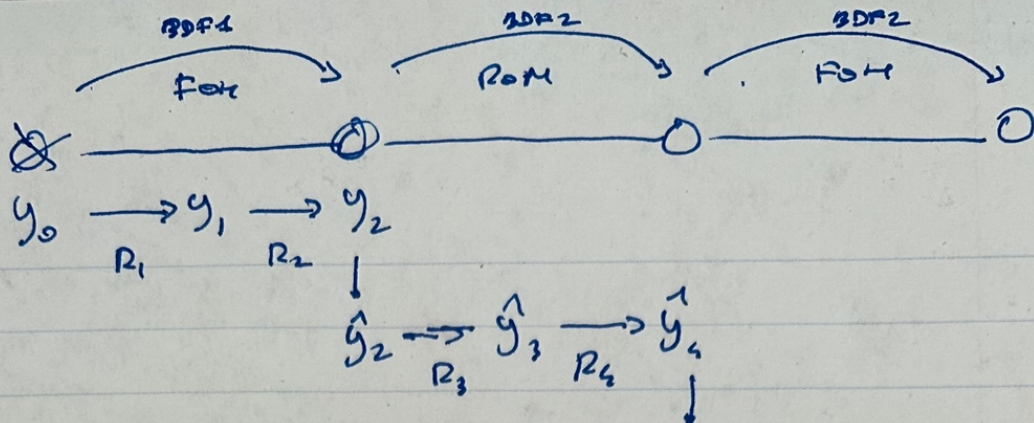 BDF1 BDF2 BDF2
FOM ROM FOM
y₀ → y₁ → y₂
R₁ R₂
↓
ŷ₂ → ŷ₃ → ŷ₄
R₃ R₄
↓